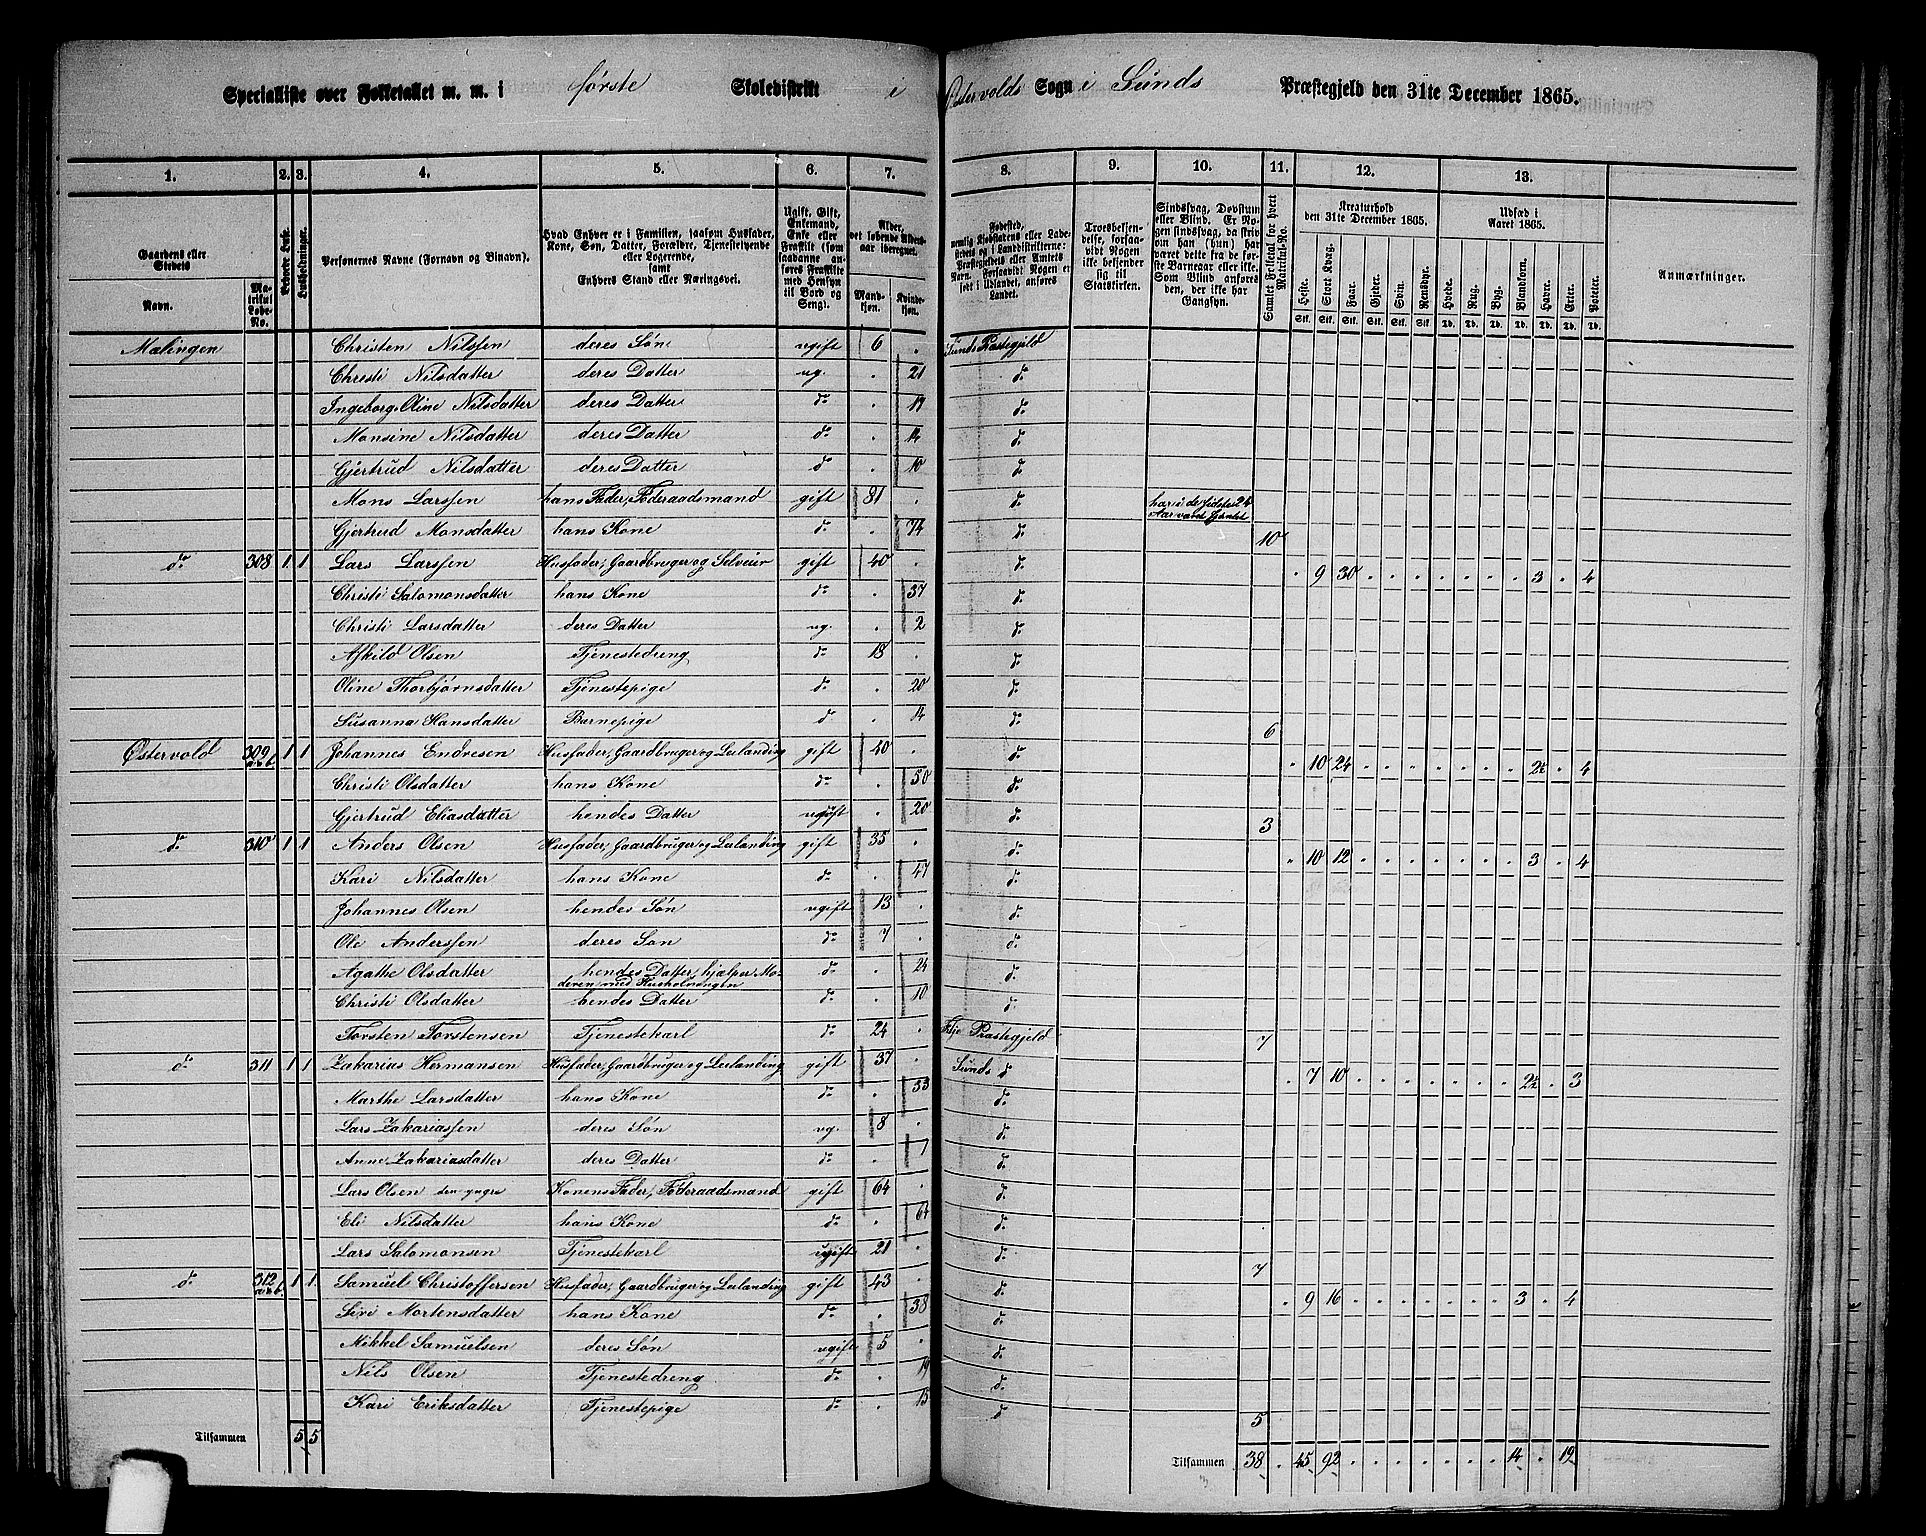 Specialliste over Folketallet m. m. i første Skoledistrikt i Ostervolds Sogn i Sunds Præstegjeld den 31te December 1865.
1. 2. 3. 4. 5. 6. 7. 8. 9. 10. 11. 12. 13.
Gaardens eller Stedets Navn. Matrikul Løbe-No. Beboede Huse. Husholdninger. Personernes Navne (Fornavn og Binavn). Hvad Enhver er i Familien, saasom Husfader, Kone, Søn, Datter, Forældre, Tjenestetyende eller Logerende, samt Enhvers Stand eller Næringsvei. Ugift, Gift, Enkemand, Enke eller Fraskilt (som saadanne anføres Fraskilte med Hensyn til Bord og Seng). Alder, det løbende Aldersaar iberegnet. Mandkjøn. Kvindekjøn.
Kreaturhold den 31te December 1865. Udsæd i Aaret 1865. Anmærkninger.
Heste. Stort Kvæg. Faar. Gjeder. Svin. Rensdyr. Hvede. Rug. Byg. Blandkorn. Havre. Erter. Poteter.
Malingen Christen Nilssen deres Søn ugift 6 . Sunds Præstegjeld
Christi Nilsdatter deres Datter ug. . 21 do
Ingeborg Oline Nilsdatter deres Datter do . 17 do
Monsine Nilsdatter deres Datter do . 14 do
Gjertrud Nilsdatter deres Datter do . 10 do
Mons Larssen hans Fader, Føderaadsmand gift 81 . do har i de sidste 24 Aar været
Gjertrud Monsdatter hans Kone do . 74 do 10
do 308 1 1 Lars Larssen Husfader, Gaardbruger og Selveier gift 40 . do . 9 30 . . . . . . . 3 . 4
Christi Salomonsdatter hans Kone do . 37 do
Christi Larsdatter deres Datter ug. . 2 do
Askild Olsen Tjenestedreng do 18 . do
Oline Thorbjørnsdatter Tjenestepige do . 20 do
Susanna Hansdatter Barnepige do . 14 do 6
Østervold 309 a & b 1 1 Johannes Endresen Husfader, Gaardbruger og Leilænding gift 40 . do . 10 24 . . . . . . . 2½ . 4
Christi Olsdatter hans Kone do . 50 do
Gjertrud Eliasdatter hendes Datter ugift . 20 do 3
do 310 1 1 Anders Olsen Husfader, Gaardbruger og Leilænding gift 35 . do . 10 12 . . . . . . . 3 . 4
Kari Nilsdatter hans Kone do . 47 do
Johannes Olsen hendes Søn ugift 13 . do
Ole Anderssen deres Søn do 7 . do
Agathe Olsdatter hendes Datter, hjælper Moderen med Husholdningen do . 24 do
Christi Olsdatter hendes Datter do . 10 do
Torsten Torstensen Tjenestekarl do 24 . Præstegjeld 7
do 311 1 1 Zakarias Hermansen Husfader, Gaardbruger og Leilænding gift 37 . Sunds do . 7 10 . . . . . . . 2½ . 3
Marthe Larsdatter hans Kone do . 33 do
Lars Zakariassen deres Søn ug. 8 . do
Anne Zakariasdatter deres Datter do . 7 do
Lars Olsen den yngre Konens Fader, Føderaadsmand gift 64 . do
Eli Nilsdatter hans Kone do . 64 do
Lars Salomonsen Tjenestekarl ugift 21 . do 7
do 312 a & b 1 1 Samuel Christoffersen Husfader, Gaardbruger og Leilænding gift 43 . do . 9 16 . . . . . . . 3 . 4
Siri Mortensdatter hans Kone do . 38 do
Mikkel Samuelsen deres Søn ugift 5 . do
Nils Olsen Tjenestedreng do . 19 do
Kari Eriksdatter Tjenestepige do . 15 do 5
Tilsammen 5 5 Tilsammen 38 . 45 92 . . . . . . . 14 . 19